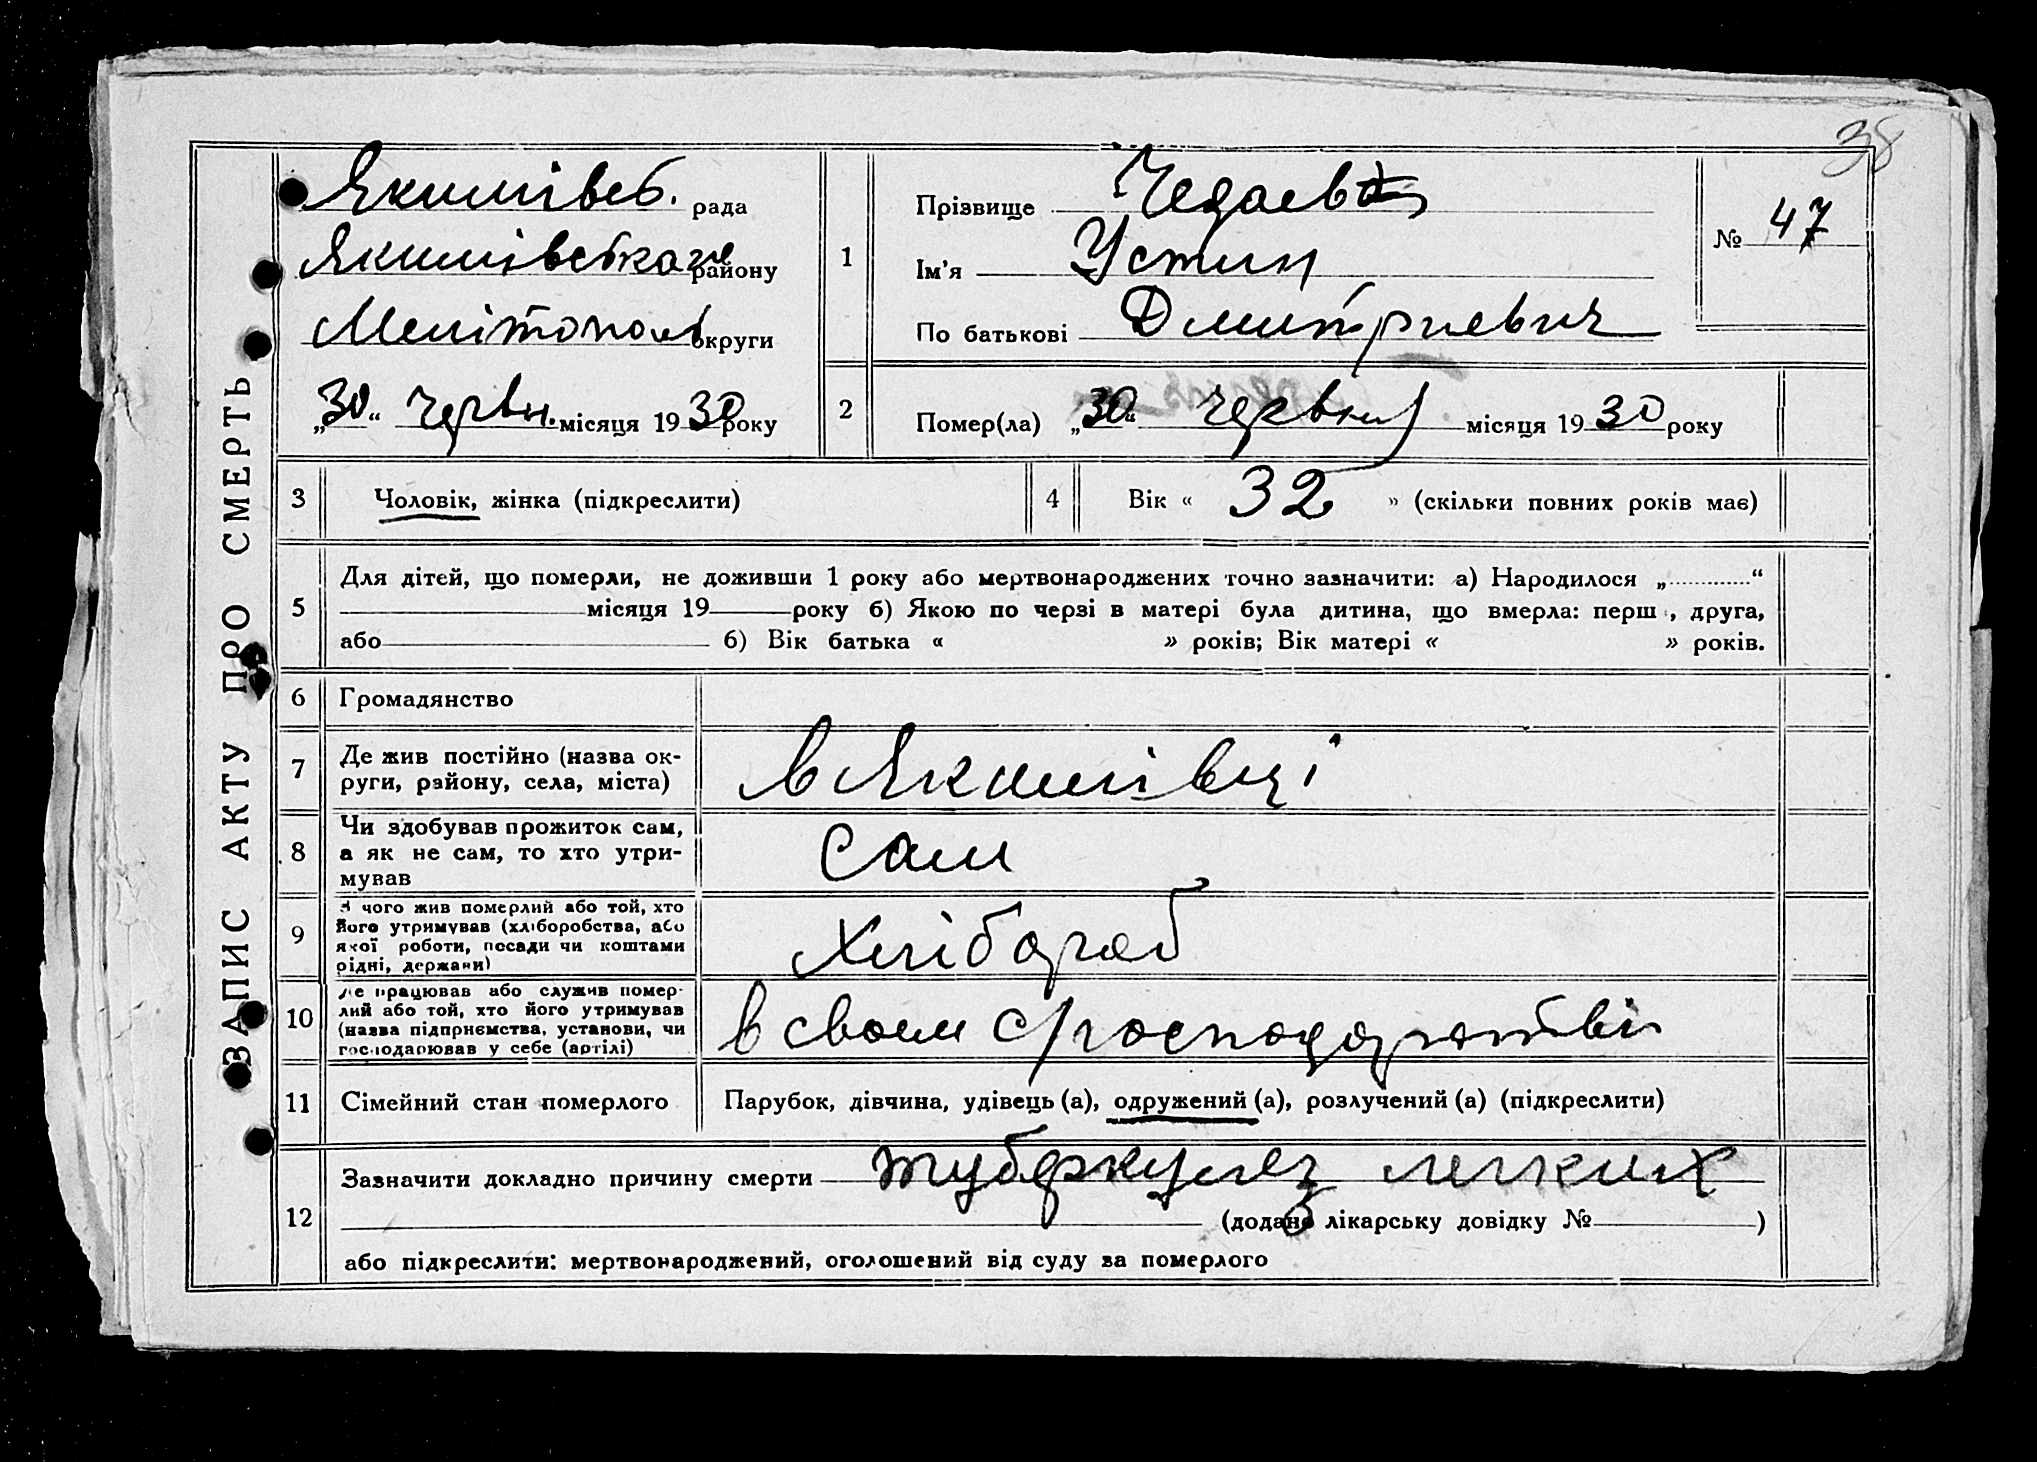 38
ЗАПИС АКТУ ПРО СМЕРТЬ
Якимівсь. рада
Якимівського району
Мелітополь округи
„30“ червн. місяця 1930 року
1
Прізвище Чедаев
Ім'я Устин
По батькові Дмитриевич
№ 47
2
Помер(ла) „30“ червня місяця 1930 року
3 Чоловік, жінка (підкреслити)
4 Вік « 32 » (скільки повних років має)
5
Для дітей, що померли, не доживши 1 року або мертвонароджених точно зазначити: а) Народилося „ “
місяця 19 року б) Якою по черзі в матері була дитина, що вмерла: перш , друга,
або б) Вік батька « » років; Вік матері « » років.
6 Громадянство
7
Де жив постійно (назва ок-
руги, району, села, міста)
в Якимівці
8
Чи здобував прожиток сам,
а як не сам, то хто утри-
мував
сам
9
З чого жив померлий або той, хто
його утримував (хліборобства, або
якої роботи, посади чи коштами
рідні, держави)
Хлібороб
10
Де працював або служив помер-
лий або той, хто його утримував
(назва підприємства, установи, чи
господарював у себе (артілі)
в своем с/господарстві
11 Сімейний стан померлого
Парубок, дівчина, удівець (а), одружений (а), розлучений (а) (підкреслити)
12
Зазначити докладно причину смерти туберкулез легких
(додано лікарську довідку № )
або підкреслити: мертвонароджений, оголошений від суду за померлого